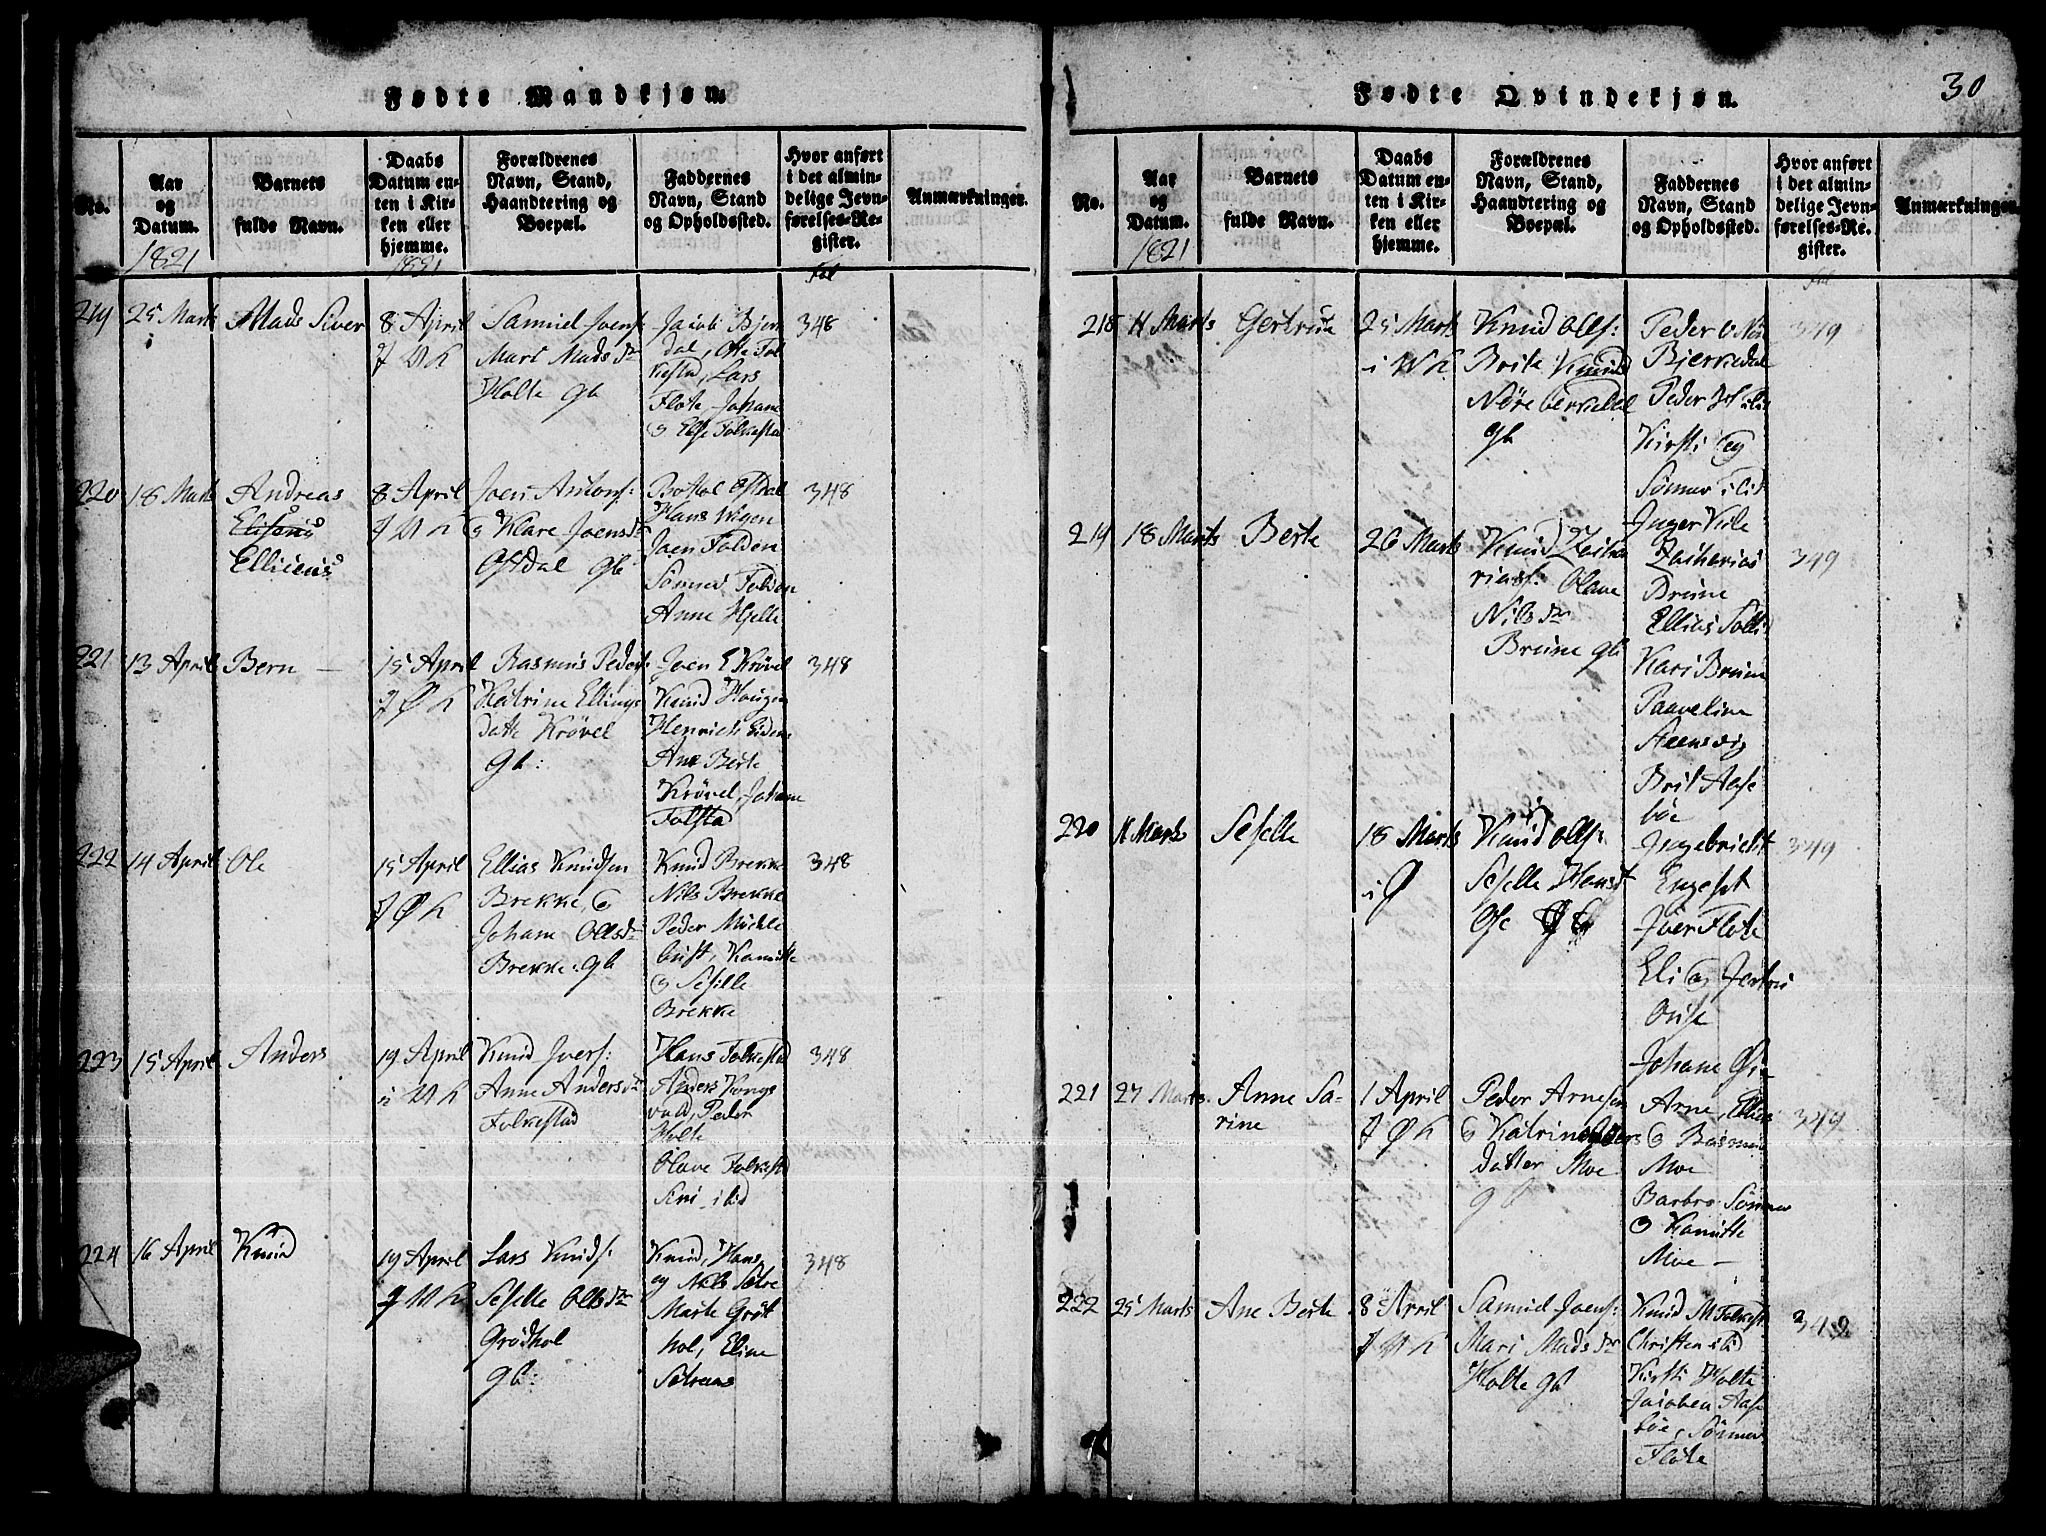 Fødte Mandkjøn.
No.
Aar
og
Datum.
1821
Barnets
fulde Navn.
Daabs
Datum en-
ten i Kir-
ken eller
hjemme.
1821
Forældrenes
Navn, Stand,
Haandtering og
Boepæl.
Faddernes
Navn, Stand
og Opholdssted.
Hvor anført
i det almin-
delige Jevn-
førelses-Re-
gister.
Fol
Anmærkninger.
219
25 Marts
Mads Siver
8 April
J V K
Samuel Joens:
Mari Mads Dr
Holte gb
Jacob Bjern
dal, Ole Fol
kestad, Lars
Flote, Johane
og Else Folkestad
348
220
18 Marts
Andreas
Elisenus
Ellicens
8 April
J V K
Joen Antons:
og Klare Joensdr
Ostdal gb
Bottol Ostdal
Hans Wigen
Joen Folden
Sønnev Folden
Anne Hjelle
348
221
13 April
Bern —
15 April
J Ø K
Rasmus Peders:
Katrine Ellings
datt Krøvel
gb:
Joen E Krøvel
Knud Hougen
Henrich Eidem
Ane Berte
Krøvel, Johane
Folstad
348
222
14 April
Ole
15 April
J Ø K
Ellias Knudsen
Brekke, og
Johane Olsdr
Brekke: gb
Knud Brekke
Nils Brekke
Peder Mickle
bust, Kanutte
og Seselle
Brekke
348
223
15 April
Anders
19 April
i V K
Knud Ivers:
Anne Andersdr
Folkestad
Hans Folkestad
Anders Kongs
vold, Peder
Holte
Olave Folkestd
Siri i bid
348
224
16 April
Knud
19 April
J V K
Lars Knuds:
Seselle Olsdr
Grødhol
gb:
Knud, Hans
og Nils Sætre
Marte Grøt
hol, Eline
Sætrens
348
30
Fødte Qvindekjøn.
No.
Aar
og
Datum.
1821
Barnets
fulde Navn.
Daabs
Datum en-
ten i Kir-
ken eller
hjemme.
Forældrenes
Navn, Stand,
Haandtering og
Boepæl.
Faddernes
Navn, Stand
og Opholdssted.
Hvor anført
i det almin-
delige Jevn-
førelses-Re-
gister.
Fol
Anmærkninger.
218
11 Marts
Gertrue
25 Marts
i V K
Knud Olls:
Brite Knuds
Nore berkedal
gb
Peder
Bjerkedal
Peder
Kirsti og
Sønnev i lit
Inger Kile
349
219
18 Marts
Berte
26 Marts
Knud Zacha
rias: Olave
Nils Dr
Brune gb
Zacharias
Brune
Ellias Solli
Kari Brune
Paaveline
Steensvig
Brit Aase
bøe
349
220
11 Marts
Seselle
18 Marts
i Ø
Knud Olls:
Seselle Hansd
Ose
Ingebricht
Engeset
Iver Flote
Eli og Jertru
Ose
Johane
349
221
27 Marts
Anne Sa-
rine
1 April
J Ø K
Peder Arnesen
og Katrine
datter Moe
gb
Arne, Ellias
og Rasmus
Moe
Barbro Sønnev
og Kanutte
Moe —
349
222
25 Marts
Ane Berte
8 April
J V K
Samuel Joens:
Mari Mads Dr
Holte gb
Knud M Folkest
Christen i bid
Kirsti Holte
Jacobea Aase
bøe, Sønnev
Flote
349